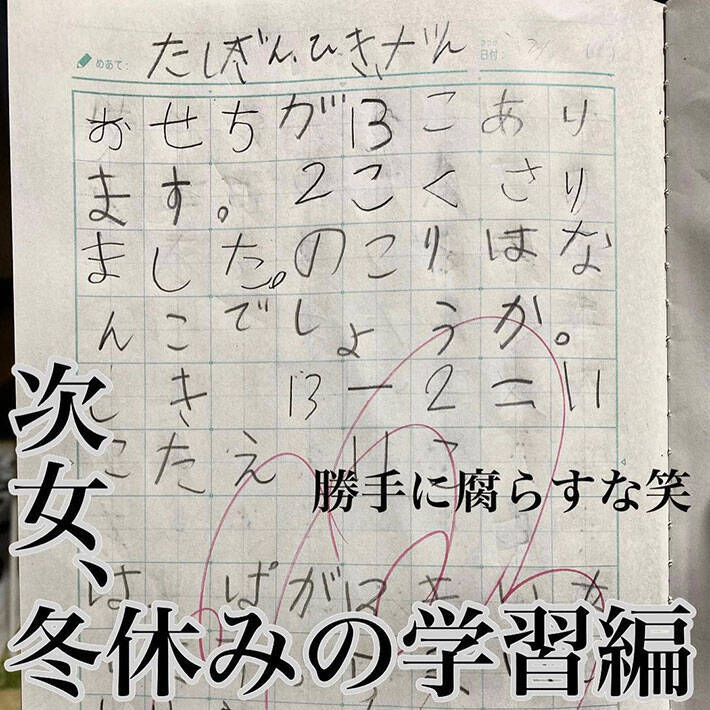 めあて：
たしざん、ひきざん
日付：
おせちが13こあり
ます。2こくさり
ました。のこりはな
んこでしょうか。
しき 13－2＝11
こたえ 11こ
勝手に腐らすな笑
次女、
冬休みの学習編